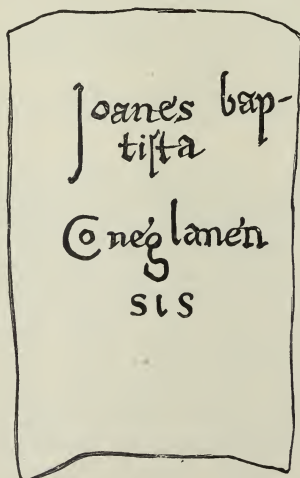 Joanes bap-
tiſta
Coneglanen
sis